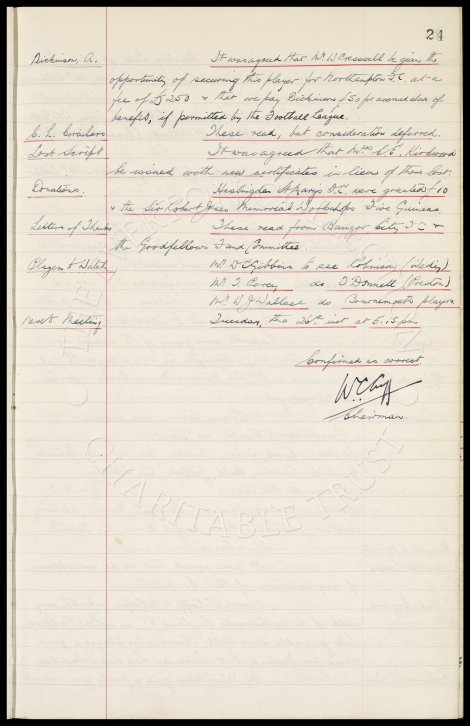 24
Dickinson, A. It was agreed that Mr W. Cresswell be given the
opportunity of securing this player for Northampton F.C. at a
fee of £250 & that we pay Dickinson £50 for accrued share of
benefit, if permitted by the Football League.
C. L. Circulars These read, but consideration deferred.
Lost Script It was agreed that Mrs C. E. Kirkwood
be issued with new certificates in lieu of those lost.
Donations. Haslingden St Marys F.C. were granted £10
& the Sir Robert Jones Memorial Workshops Five Guineas.
Letters of Thanks These read from Bangor City F.C. &
the Goodfellows Fund Committee.
Players to Watch Mr D C Gibbins to see Robinson
Mr T. Percy do. O'Donnell (Preston)
Mr W J Wallace do Bournemouth player
Next Meeting Tuesday, the 26th inst at 5.15 pm
Confirmed as correct
W.C. Cuff
Chairman.
CHARITABLE TRUST